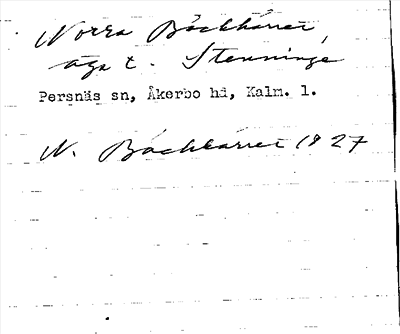 Norra Bäckkärret,
äga t. Stenninge
Persnäs sn, Åkerbo hd, Kalm. l.
N. Bäckkärret 1927